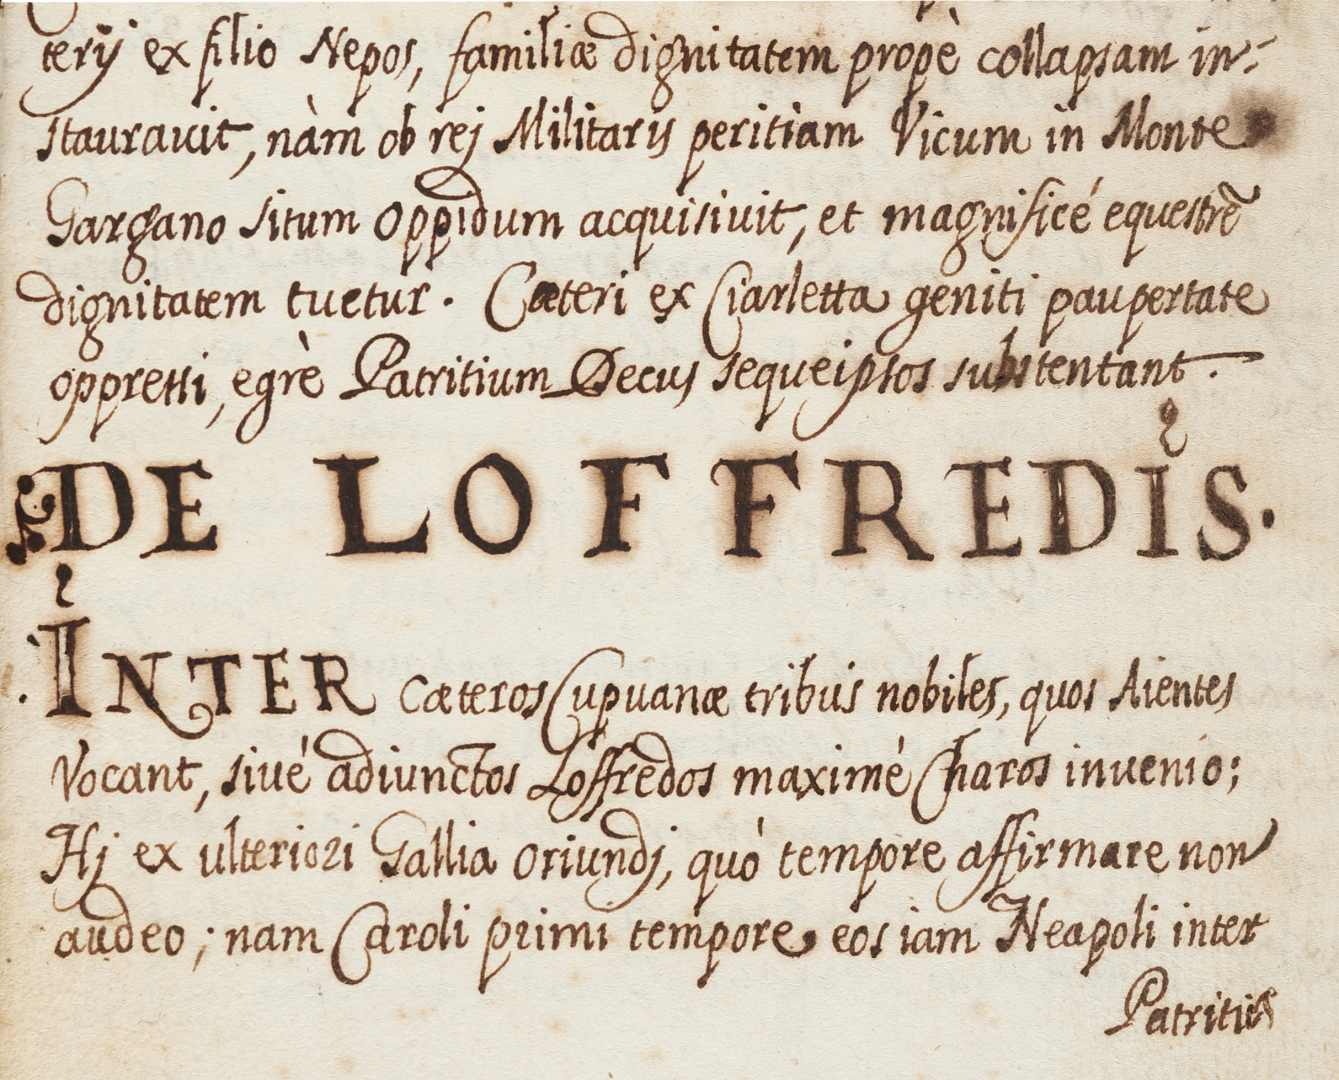 terÿ ex filio Nepos, familiæ dignitatem propè collapsam in-
stauravit, nàm ob rej Militarÿ peritiam Vicum in Monte
Gargano situm Oppidum acquisivit, et magnificé equestrē
dignitatem tuetur. Cæteri ex Ciarletta geniti paupertate
oppressi, egrè Patritium Decus sequeipsos substentant.
DE LOFFREDIS.
INTER cæteros Cupuanæ tribus nobiles, quos Aientes
Vocant, sivé adiunctos Loffredos maximé Charos invenio;
Hj ex ulteriori Gallia oriundj, quò tempore affirmare non
audeo; nam Caroli primi tempore eos iam Neapoli inter
Patritios